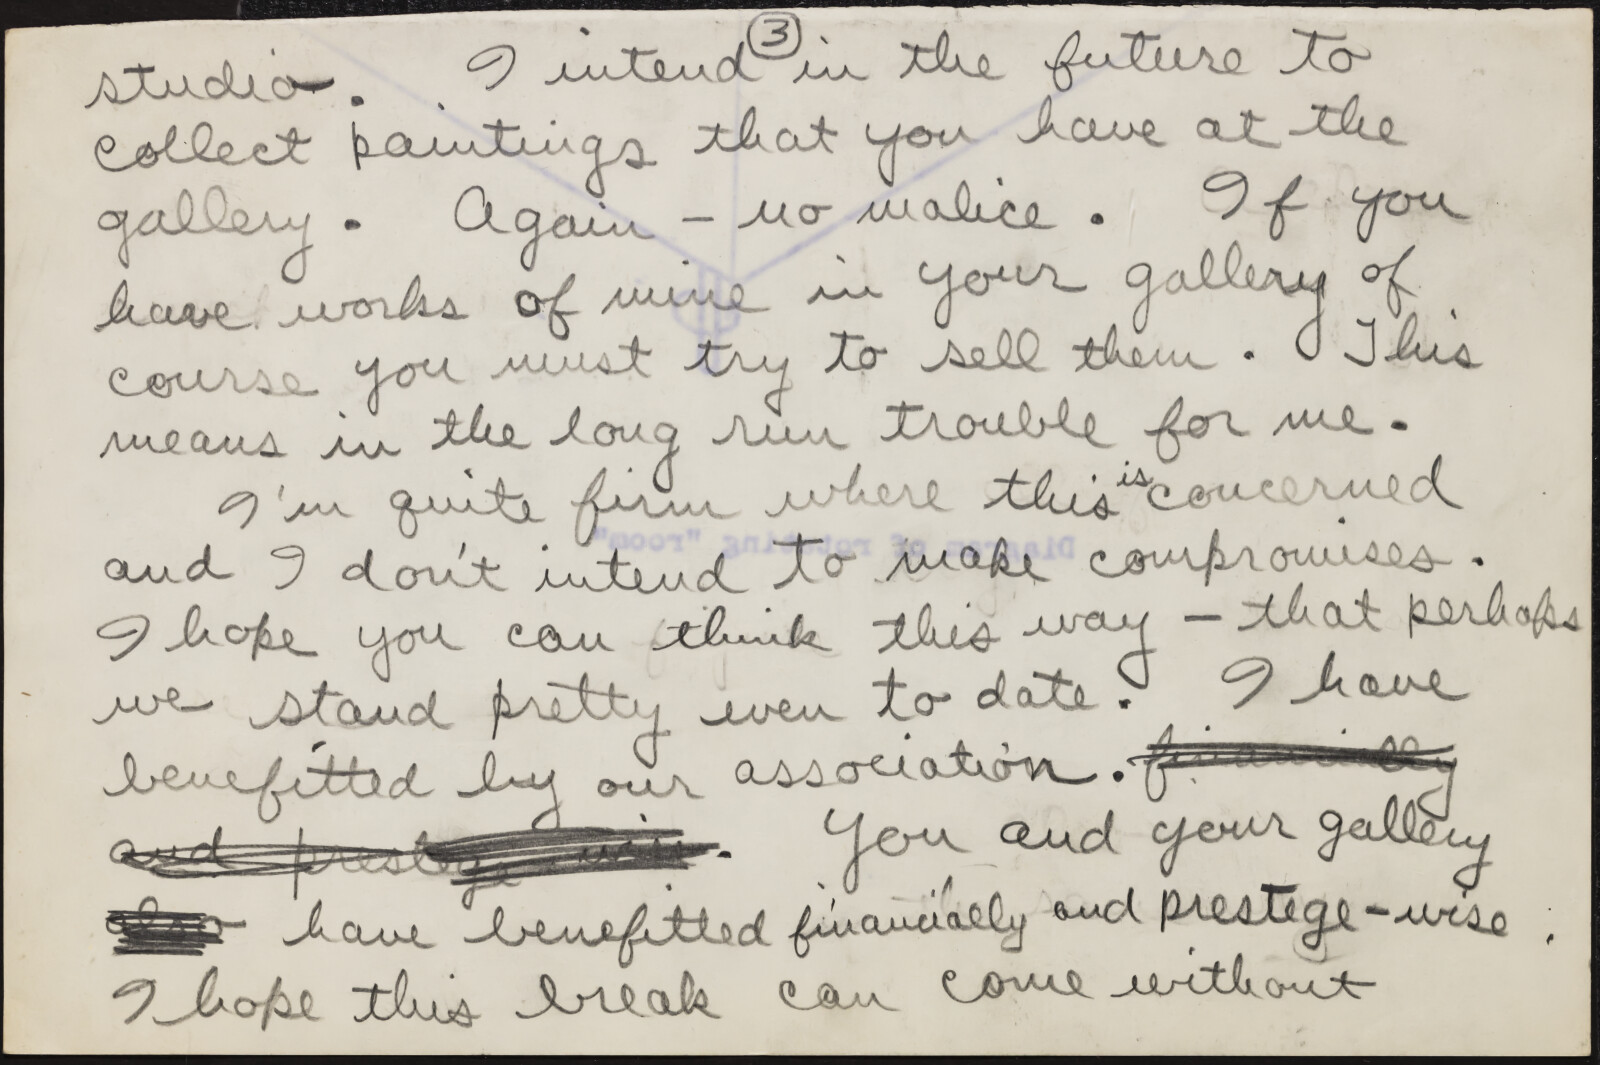 3
studio. I intend in the future to
collect paintings that you have at the
gallery. Again – no malice. If you
have works of mine in your gallery of
course you must try to sell them. This
means in the long run trouble for me.
I'm quite firm where this is concerned
Diagram of rotating "room"
and I don't intend to make compromises.
I hope you can think this way – that perhaps
we stand pretty even to date. I have
benefitted by our association. financially
and prestege wise. You and your gallery
also have benefitted financially and prestege-wise.
I hope this break can come without